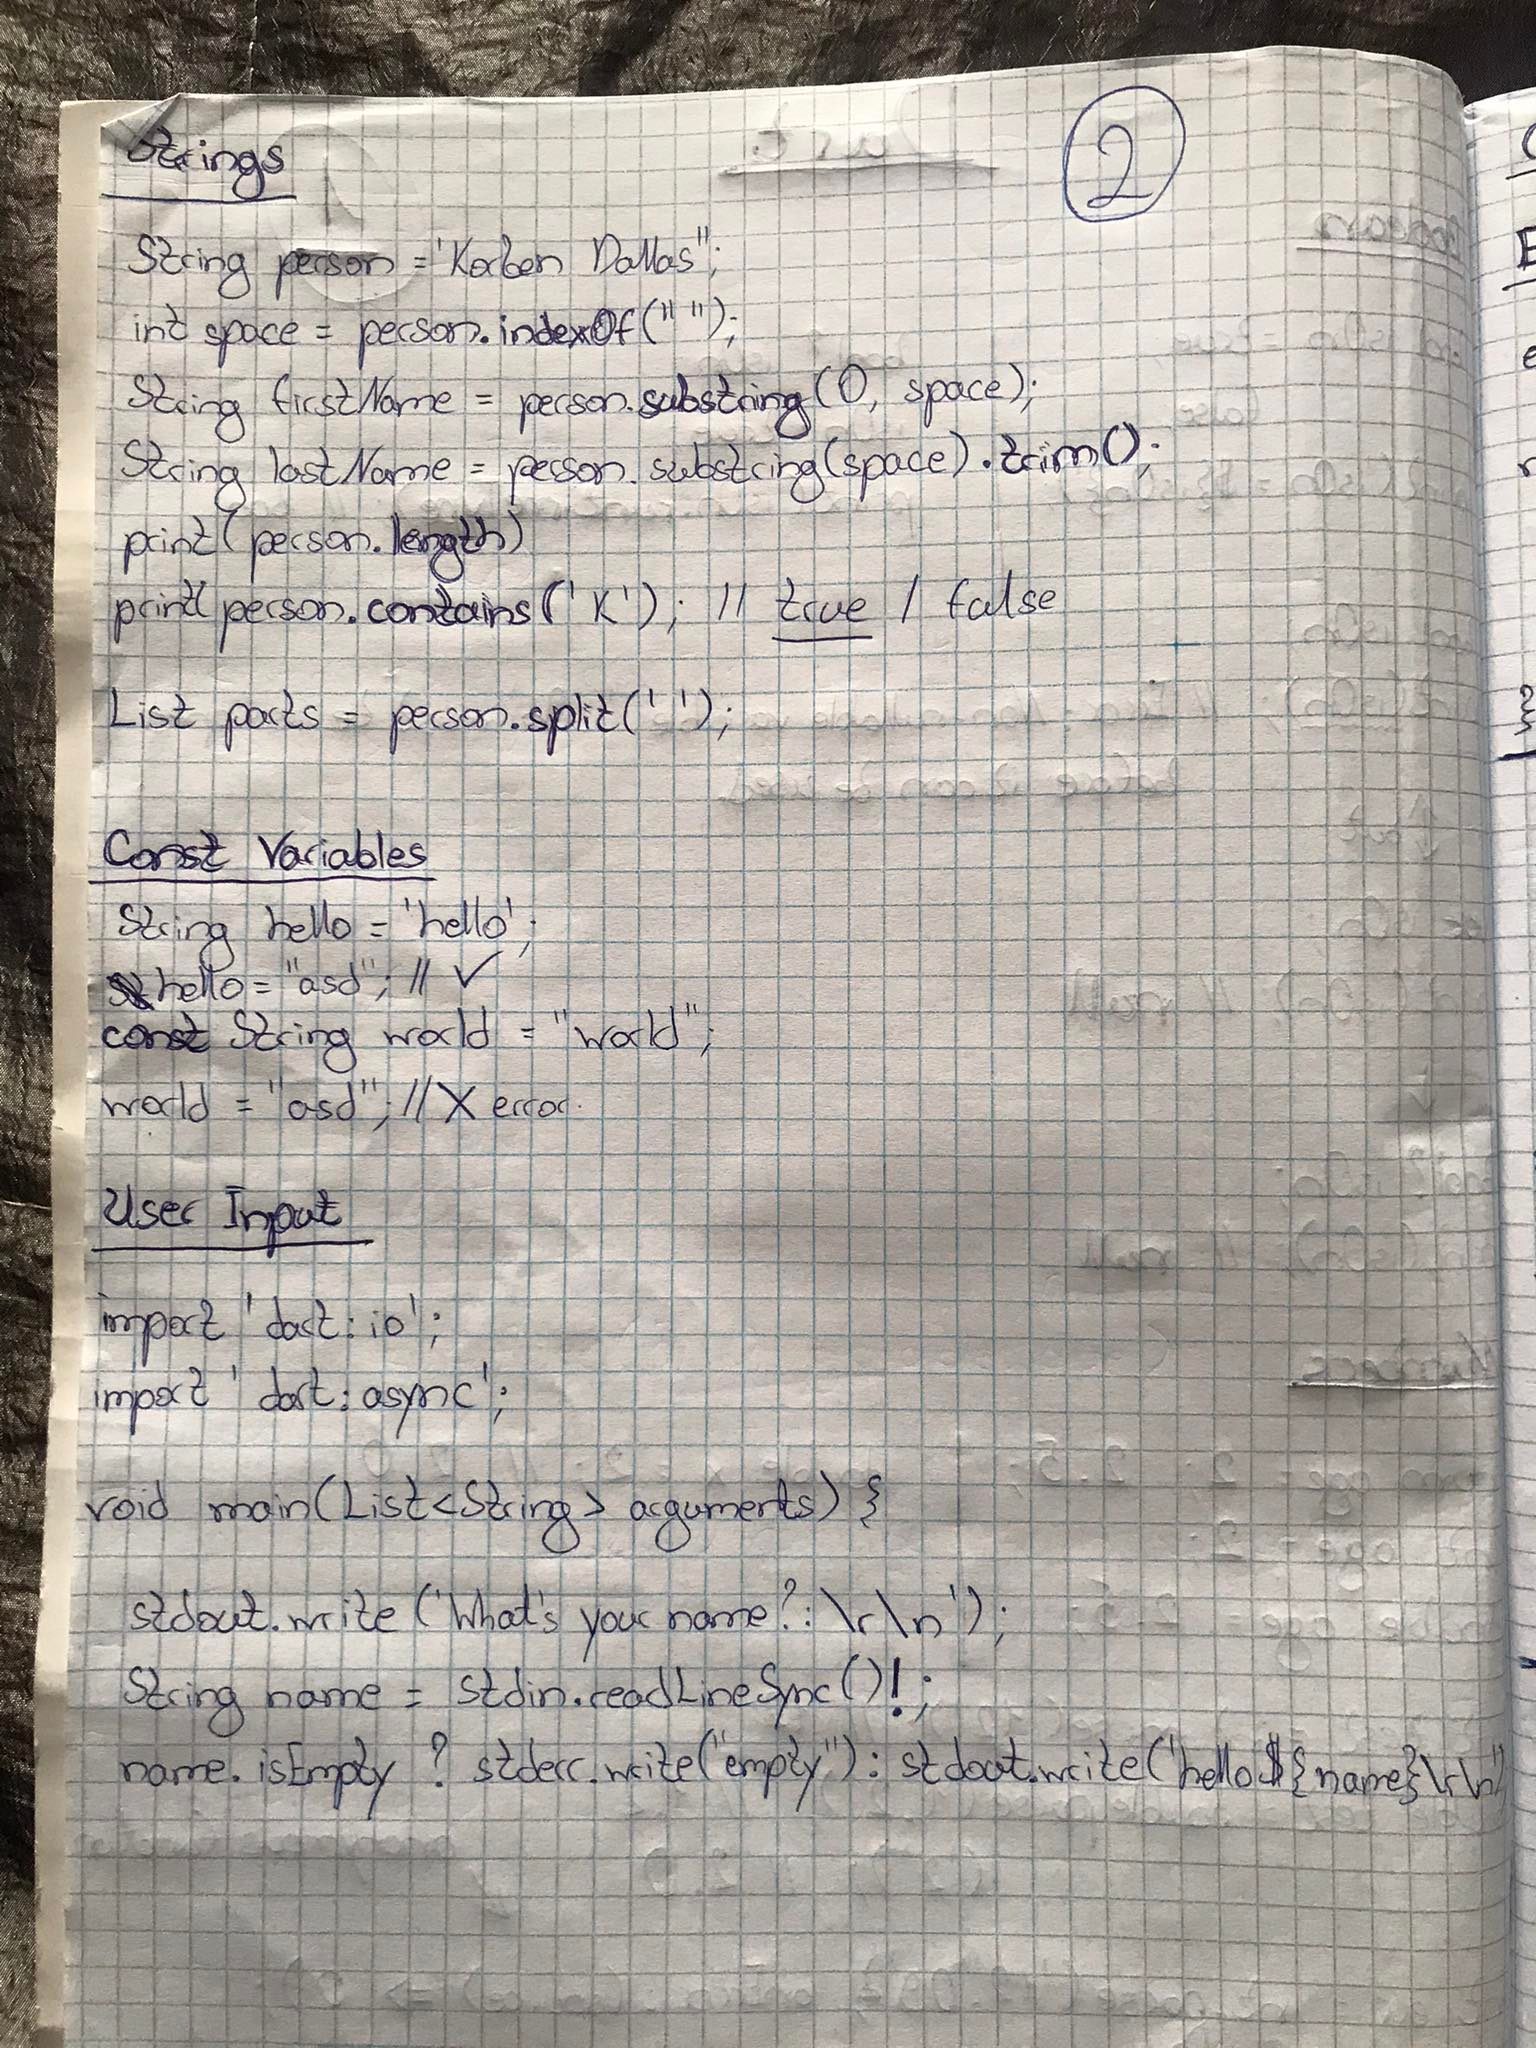 Strings
2
String person = 'Korben Dallas";
int space = person.indexOf(" ");
String firstName = person.substring(0, space);
String lastName = person.substring(space).trim();
print(person.length)
print(person.contains('K'); // true / false
List parts = person.split(' ');
Const Variables
String hello = 'hello';
hello = "asd"; // ✓
const String world = "world";
world = "asd"; // X error.
User Input
import 'dart:io';
import 'dart:async';
void main(List<String> arguments) {
stdout.write('What's your name?: \r\n');
String name = stdin.readLineSync()!;
name.isEmpty ? stderr.write("empty"): stdout.write('hello ${name}\r\n")